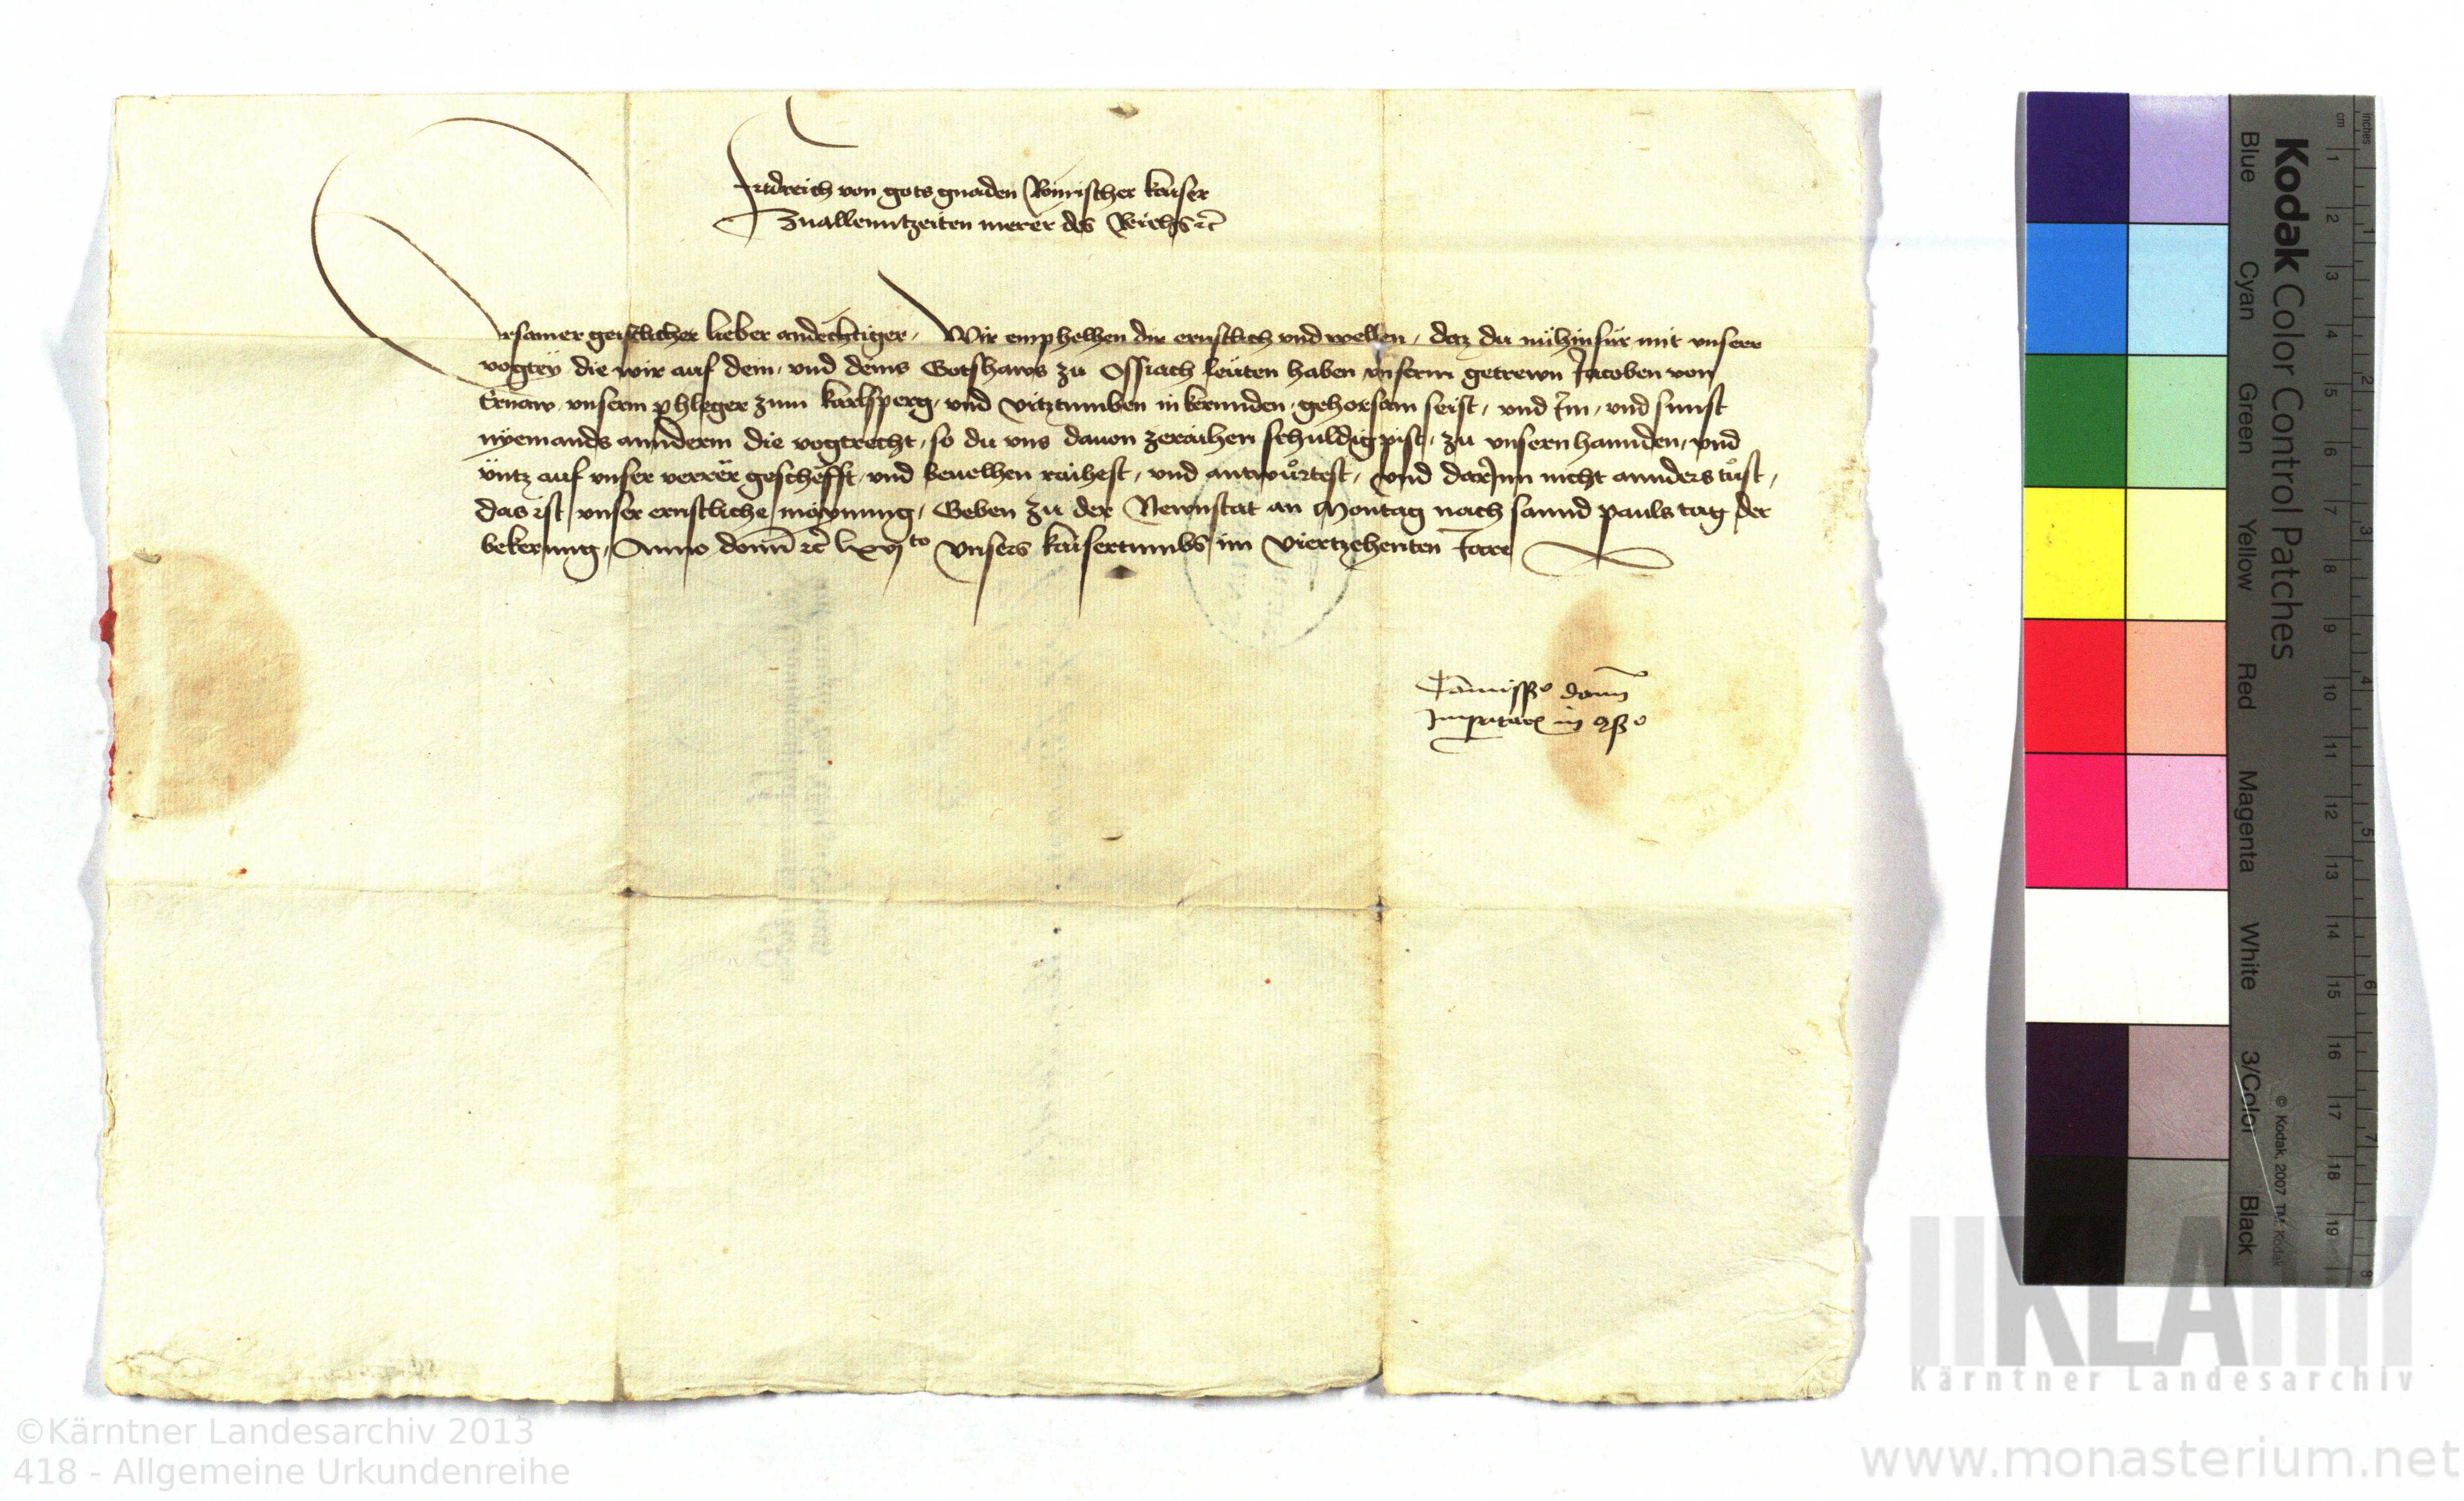 Fridreich von gots gnaden Römischer kaiser
Zuallenntzeiten merer des Reichs ꝛc̄
Ersamer geistlicher lieber andechtiger, Wir emphelhen dir ernstlich vnd wellen, daz du nuhinfür mit vnserr
vogtey die wir auf dein, vnd deins Gotshaws zu Ossiach leüten haben vnserm getrewn Jacoben von
Ernaw vnserm phleger zum karlsperg, vnd Vitztumben in kernnden, gehorsam seist, vnd Im, vnd sunst
nyemands annderm die vogtrecht, so du vns dauon zeraihen schuldig pist, zu vnsern hannden, vnd
vntz auf vnser verrer geschefft, vnd beuelhen raihest, vnd antwůrtest, vnd darInn nicht annders tůst,
das ist vnser ernstliche maynung, Geben zu der Newnstat an Montag nach sannd pauls tag der
bekerung, Anno domī ꝛc̄ lxvjto Vnsers kaisertumbs im Viertzehenten Jare
Cōmissio domī
Imperatoris in
Kodak Color Control Patches
Blue Cyan Green Yellow Red Magenta White 3/Color Black
© Kodak, 2007 TM: Kodak
inches 1 2 3 4 5 6 7 8
cm 1 2 3 4 5 6 7 8 9 10 11 12 13 14 15 16 17 18 19
KLA
Kärntner Landesarchiv
©Kärntner Landesarchiv 2013
418 - Allgemeine Urkundenreihe
www.monasterium.net